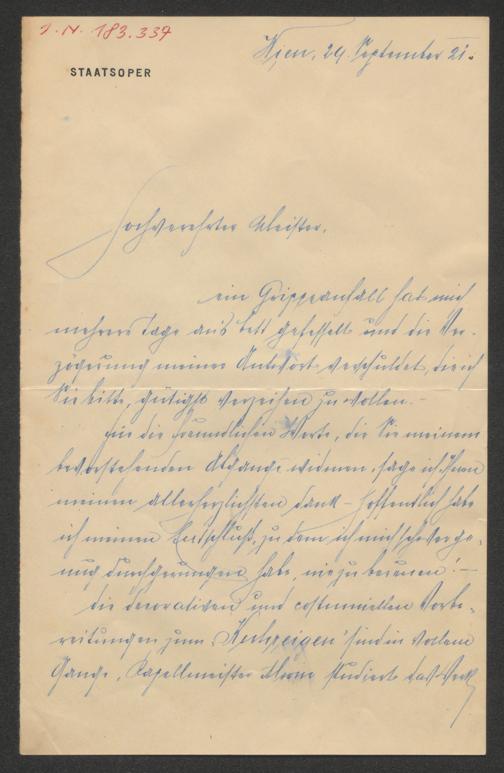 I. N. 183.337
Wien, 29. September 21.
STAATSOPER
Hochverehrter Meister,
ein Grippeanfall hat mich
mehrere Tage ans Bett gefesselt und die Ver-
zögerung meiner Antwort verschuldet, die ich
Sie bitte, gütigst verzeihen zu wollen. –
Für die freundlichen Worte, die Sie meinem
bevorstehenden Abgange widmen, sage ich Ihnen
meinen allerherzlichsten Dank – hoffentlich habe
ich meinen Entschluß, zu dem ich mich schwer ge-
nug durchgerungen habe, nie zu bereuen! –
Die decorativen und costumellen Vorbe-
reitungen zum „Kuhreigen“ sind in vollem
Gange, Kapellmeister studiert das Werk